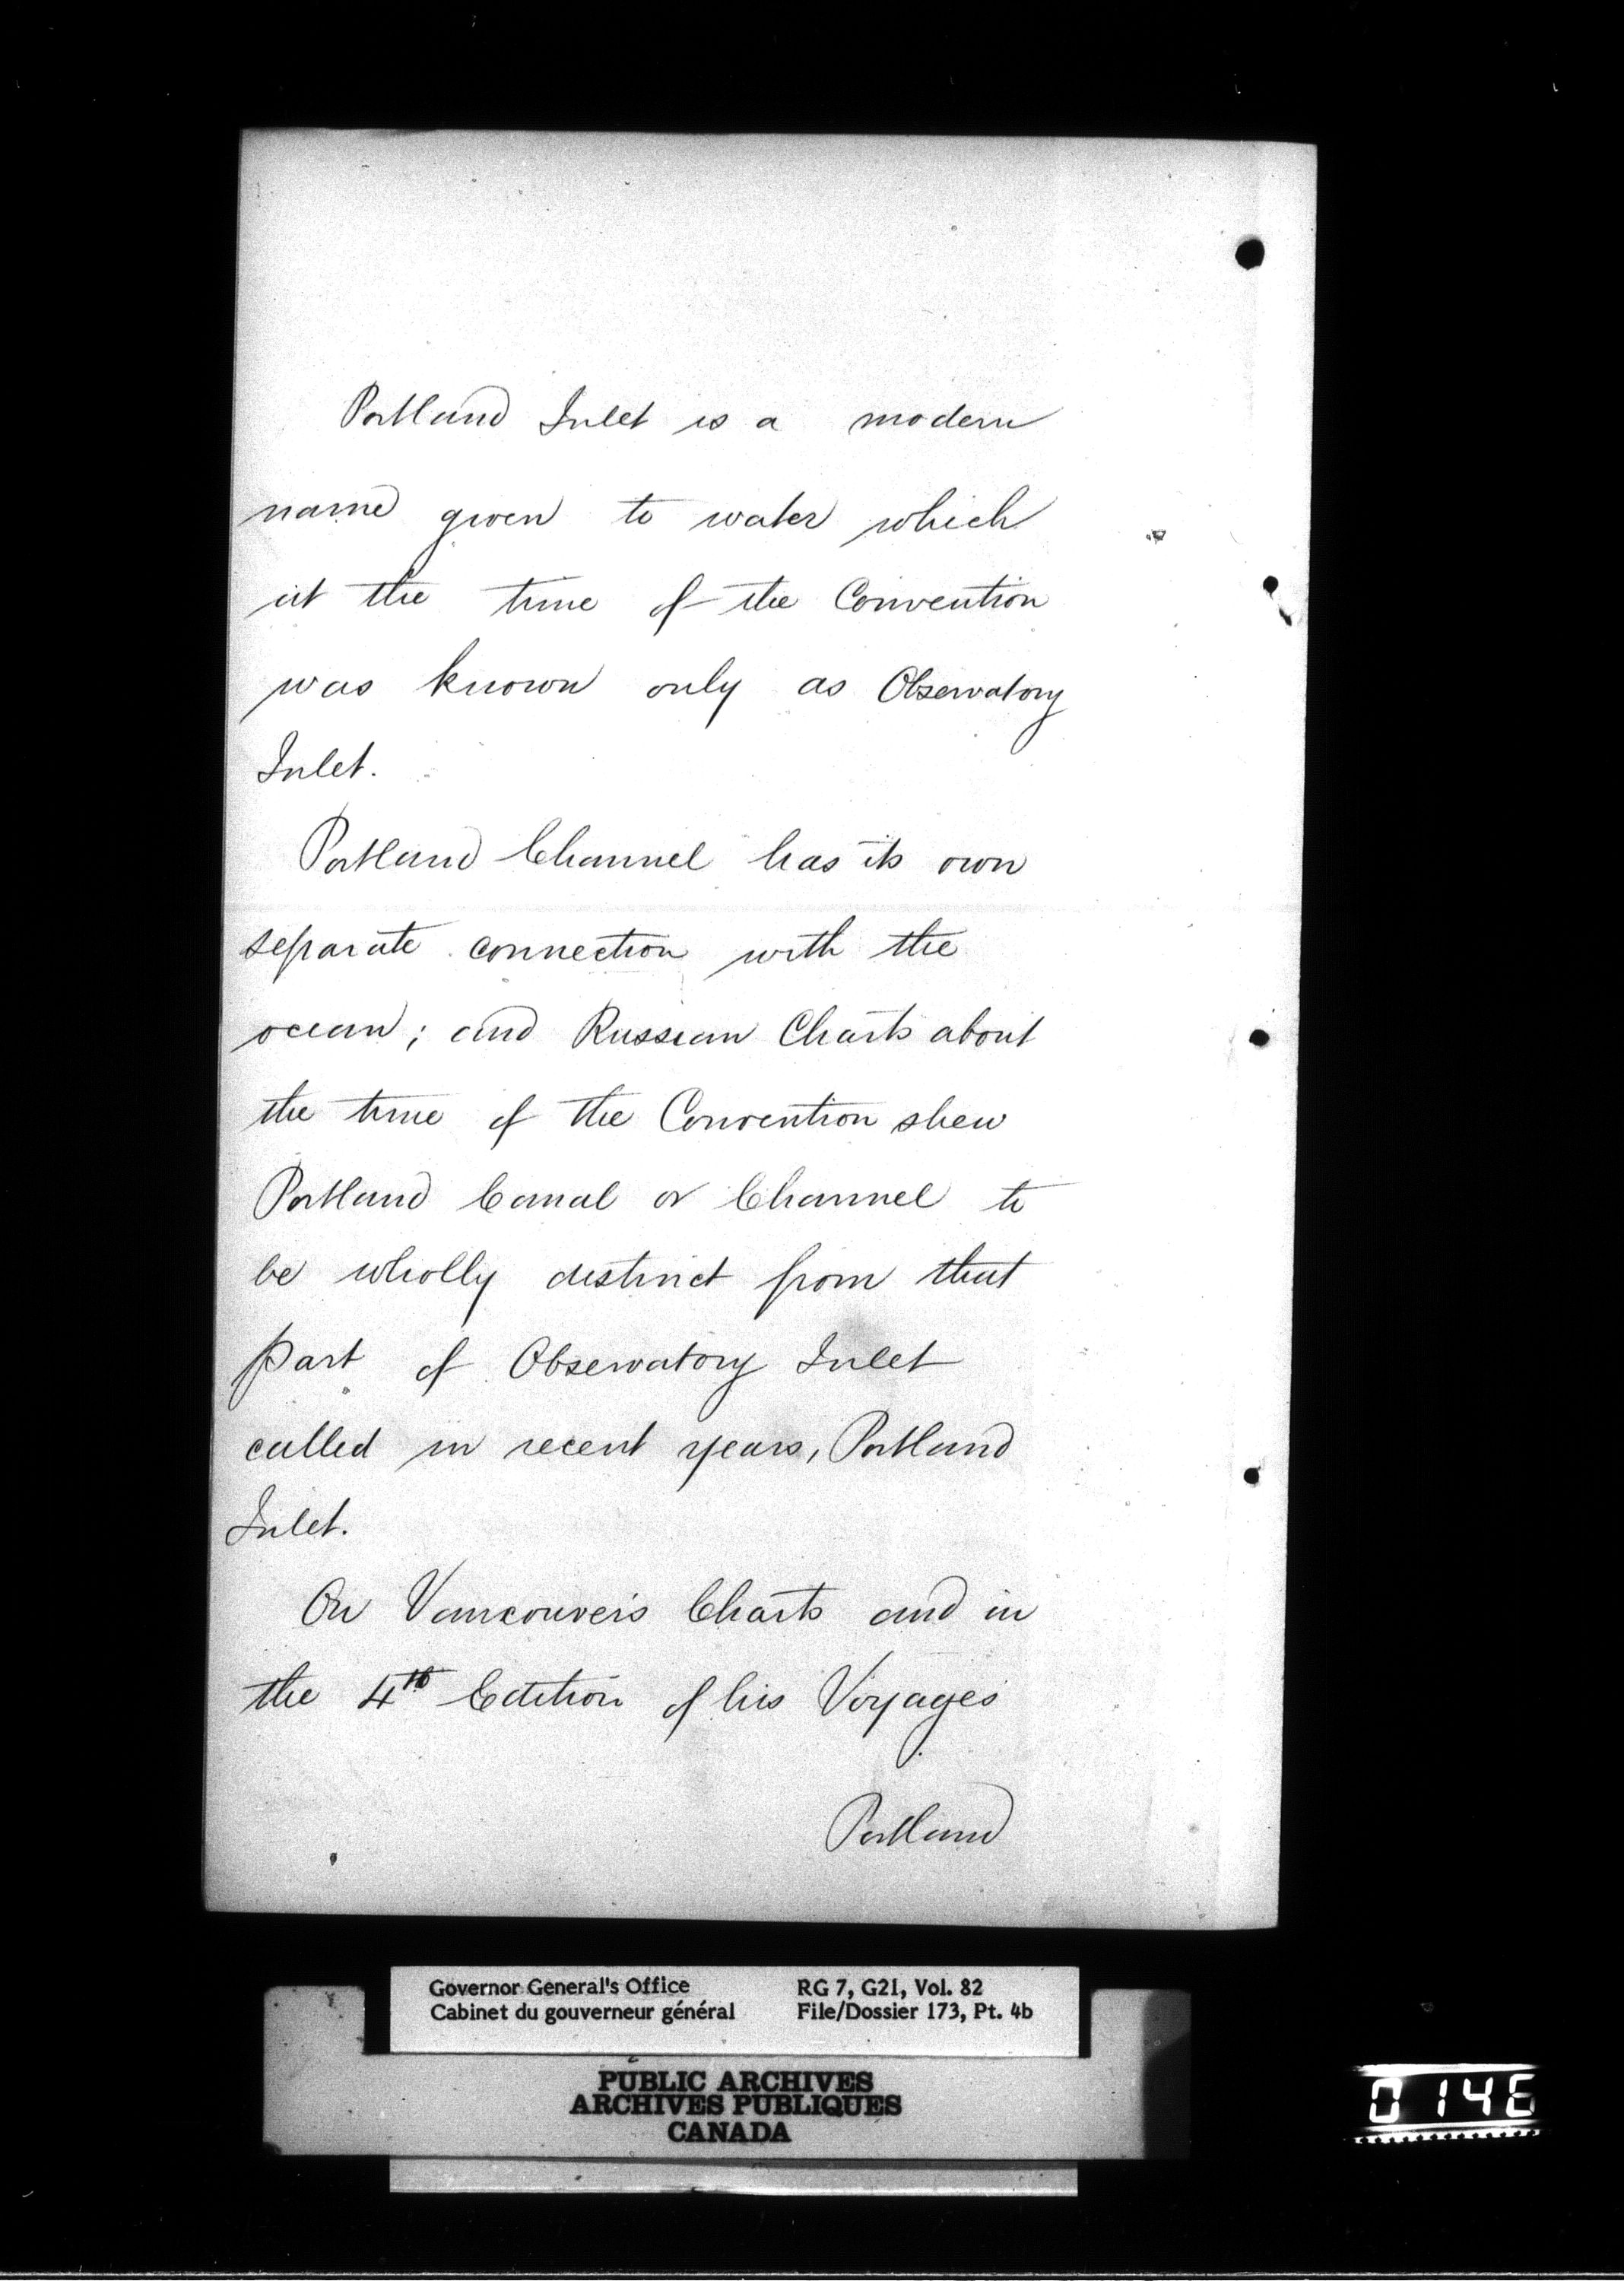 Portland Inlet is a modern
name given to water which
at the time of the Convention
was known only as Observatory
Inlet.
Portland Channel has its own
separate connection with the
ocean; and Russian Charts about
the time of the Convention shew
Portland Canal or Channel to
be wholly distinct from that
part of Observatory Inlet
called in recent years, Portland
Inlet.
On Vancouver's Charts and in
the 4th Edition of his Voyages
Portland
Governor General's Office RG 7, G21, Vol. 82
Cabinet du gouverneur général File/Dossier 173, Pt. 4b
PUBLIC ARCHIVES
ARCHIVES PUBLIQUES
CANADA